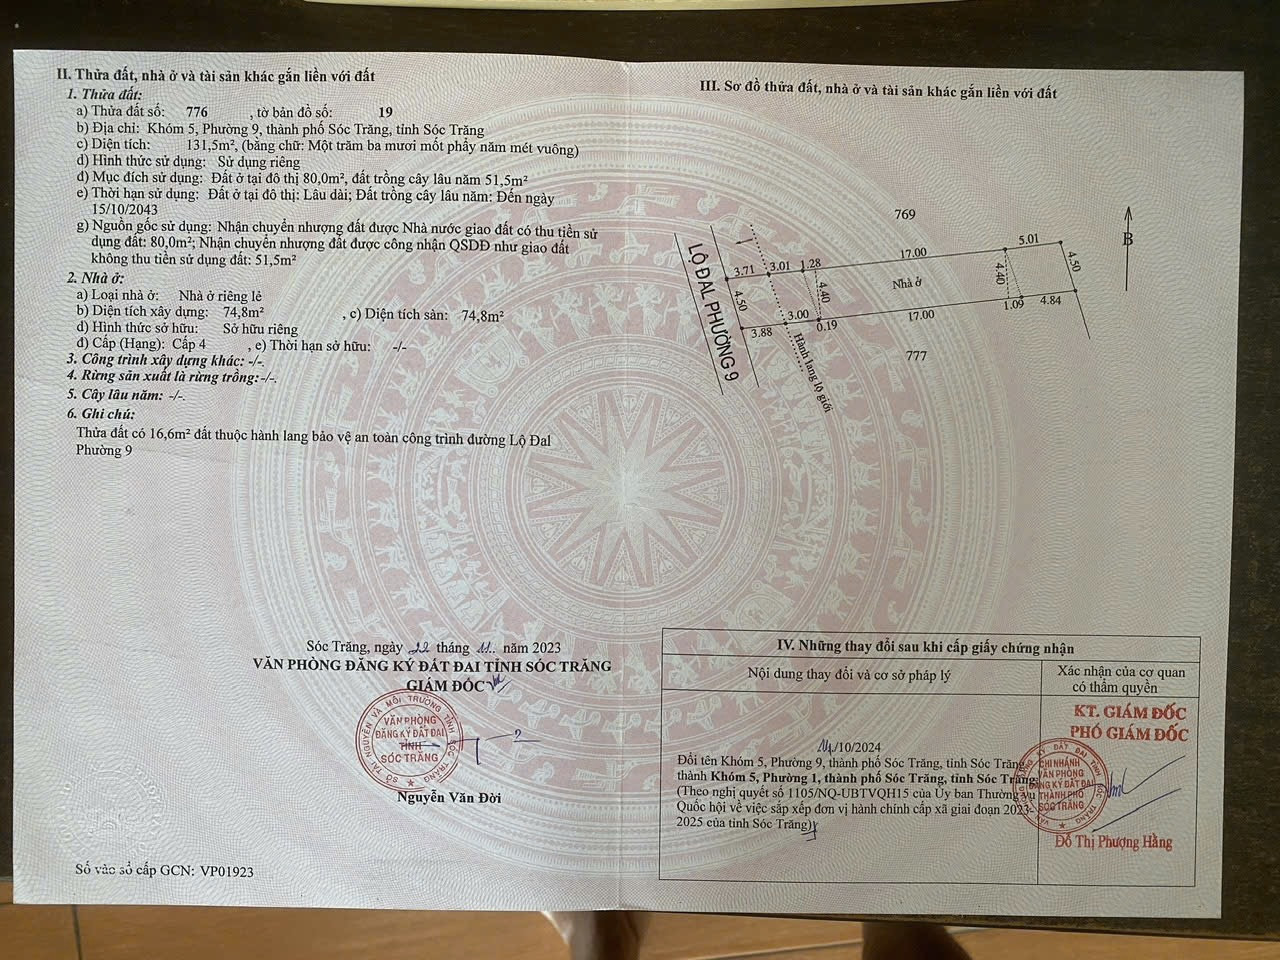 II. Thửa đất, nhà ở và tài sản khác gắn liền với đất
1. Thửa đất:
a) Thửa đất số: 776 , tờ bản đồ số: 19
b) Địa chỉ: Khóm 5, Phường 9, thành phố Sóc Trăng, tỉnh Sóc Trăng
c) Diện tích: 131,5m², (bằng chữ: Một trăm ba mươi mốt phẩy năm mét vuông)
d) Hình thức sử dụng: Sử dụng riêng
đ) Mục đích sử dụng: Đất ở tại đô thị 80,0m², đất trồng cây lâu năm 51,5m²
e) Thời hạn sử dụng: Đất ở tại đô thị: Lâu dài; Đất trồng cây lâu năm: Đến ngày
15/10/2043
g) Nguồn gốc sử dụng: Nhận chuyển nhượng đất được Nhà nước giao đất có thu tiền sử
dụng đất: 80,0m²; Nhận chuyển nhượng đất được công nhận QSDĐ như giao đất
không thu tiền sử dụng đất: 51,5m²
2. Nhà ở:
a) Loại nhà ở: Nhà ở riêng lẻ
b) Diện tích xây dựng: 74,8m² , c) Diện tích sàn: 74,8m²
d) Hình thức sở hữu: Sở hữu riêng
đ) Cấp (Hạng): Cấp 4 , e) Thời hạn sở hữu: -/-
3. Công trình xây dựng khác: -/-.
4. Rừng sản xuất là rừng trồng:-/-.
5. Cây lâu năm: -/-.
6. Ghi chú:
Thửa đất có 16,6m² đất thuộc hành lang bảo vệ an toàn công trình đường Lộ Đal
Phường 9
Sóc Trăng, ngày 22 tháng 11. năm 2023
VĂN PHÒNG ĐĂNG KÝ ĐẤT ĐAI TỈNH SÓC TRĂNG
GIÁM ĐỐC
SỞ TÀI NGUYÊN VÀ MÔI TRƯỜNG TỈNH SÓC TRĂNG
VĂN PHÒNG
ĐĂNG KÝ ĐẤT ĐAI
TỈNH
SÓC TRĂNG
Nguyễn Văn Đời
Số vào sổ cấp GCN: VP01923
III. Sơ đồ thửa đất, nhà ở và tài sản khác gắn liền với đất
769
B
5.01
17.00
1.28
3.01
3.71
4.50
4.40
Nhà ở
4.40
4.50
LỘ ĐAL PHƯỜNG 9
3.88
3.00
0.19
17.00
1.09
4.84
Hành lang lộ giới
777
IV. Những thay đổi sau khi cấp giấy chứng nhận
Nội dung thay đổi và cơ sở pháp lý
Xác nhận của cơ quan
có thẩm quyền
14/10/2024
Đổi tên Khóm 5, Phường 9, thành phố Sóc Trăng, tỉnh Sóc Trăng
thành Khóm 5, Phường 1, thành phố Sóc Trăng, tỉnh Sóc Trăng.
(Theo nghị quyết số 1105/NQ-UBTVQH15 của Ủy ban Thường vụ
Quốc hội về việc sắp xếp đơn vị hành chính cấp xã giai đoạn 2023-
2025 của tỉnh Sóc Trăng)
KT. GIÁM ĐỐC
PHÓ GIÁM ĐỐC
CHI NHÁNH
VĂN PHÒNG
ĐĂNG KÝ ĐẤT ĐAI
THÀNH PHỐ
SÓC TRĂNG
Đỗ Thị Phượng Hằng